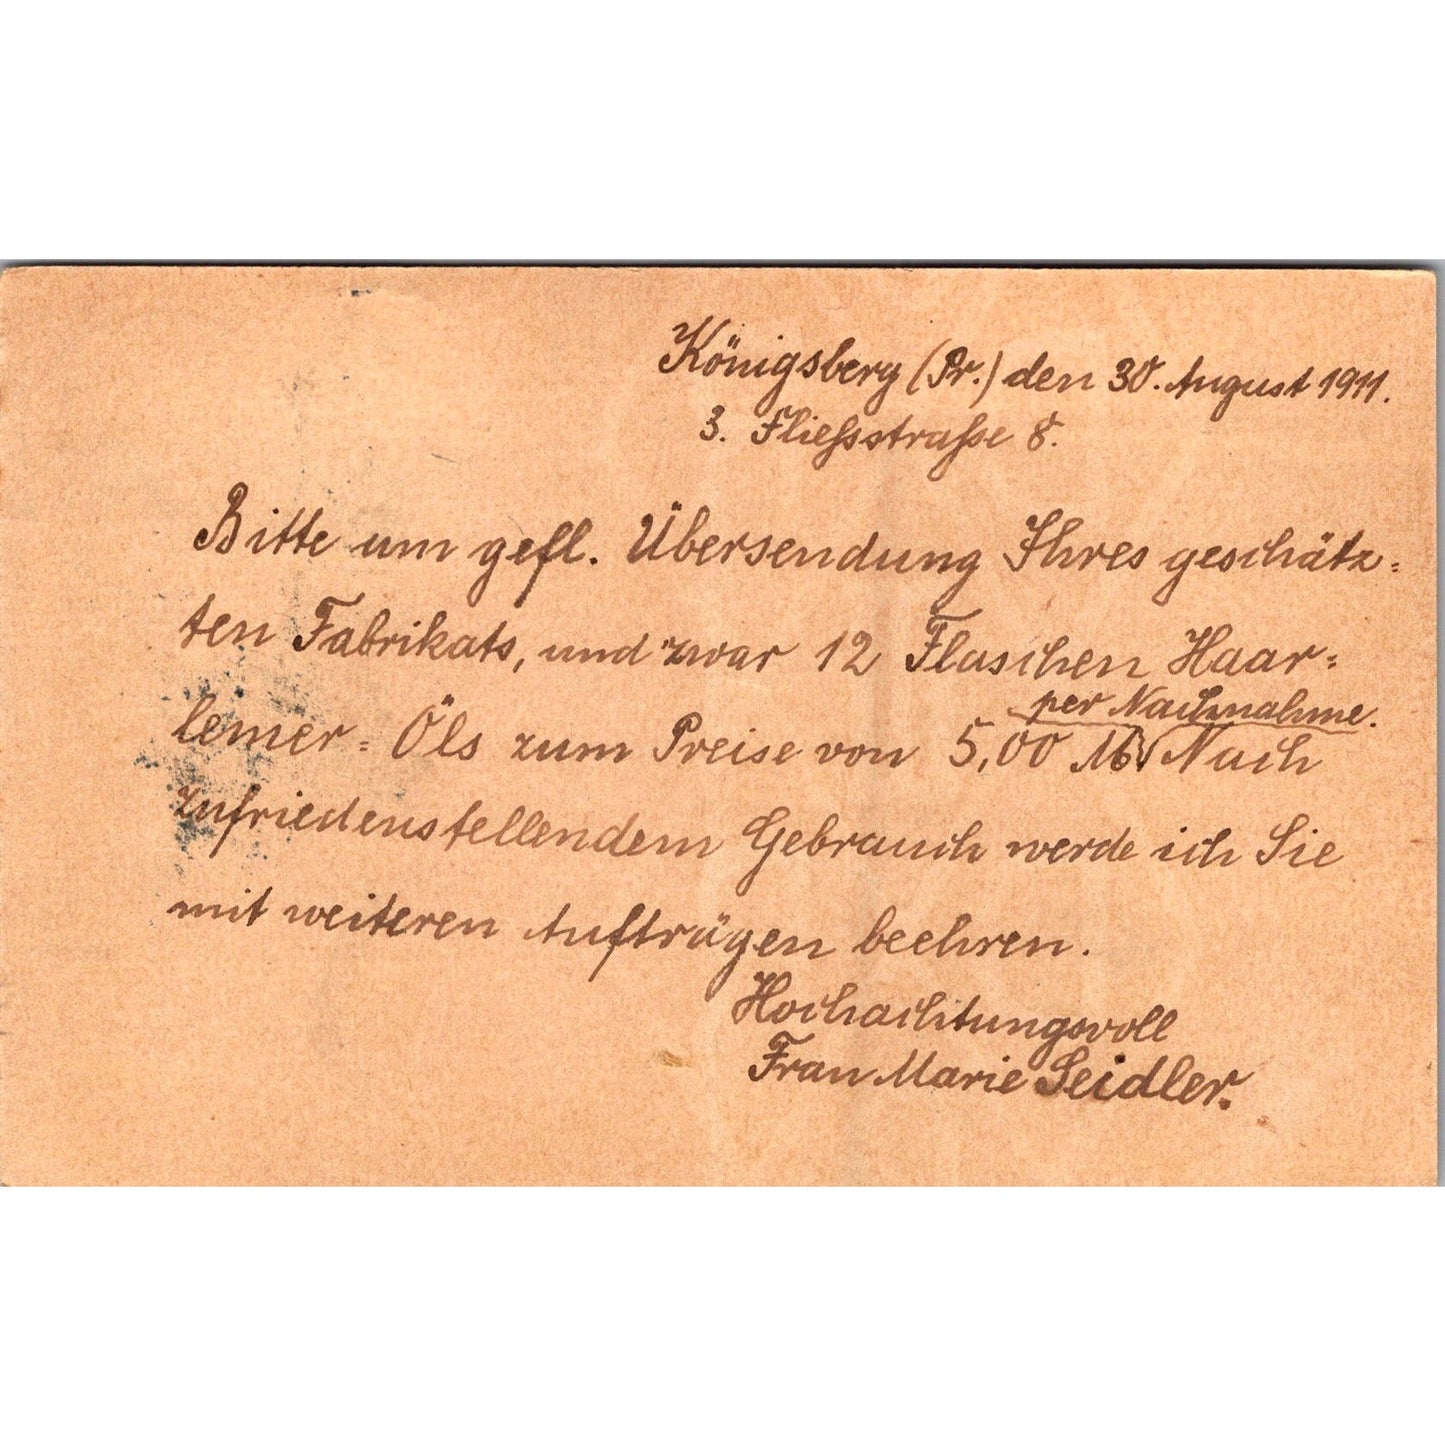 Königsberg (Pr.) den 30. August 1911.
3. Fliessstrasse 8.
Bitte um gefl. Übersendung Ihres geschätz=
ten Fabrikats, und zwar 12 Flaschen Haar=
per Nachnahme.
lemer=Öls zum Preise von 5,00 M Nach
zufriedenstellendem Gebrauch werde ich Sie
mit weiteren Aufträgen beehren.
Hochachtungsvoll
Frau Marie Seidler.